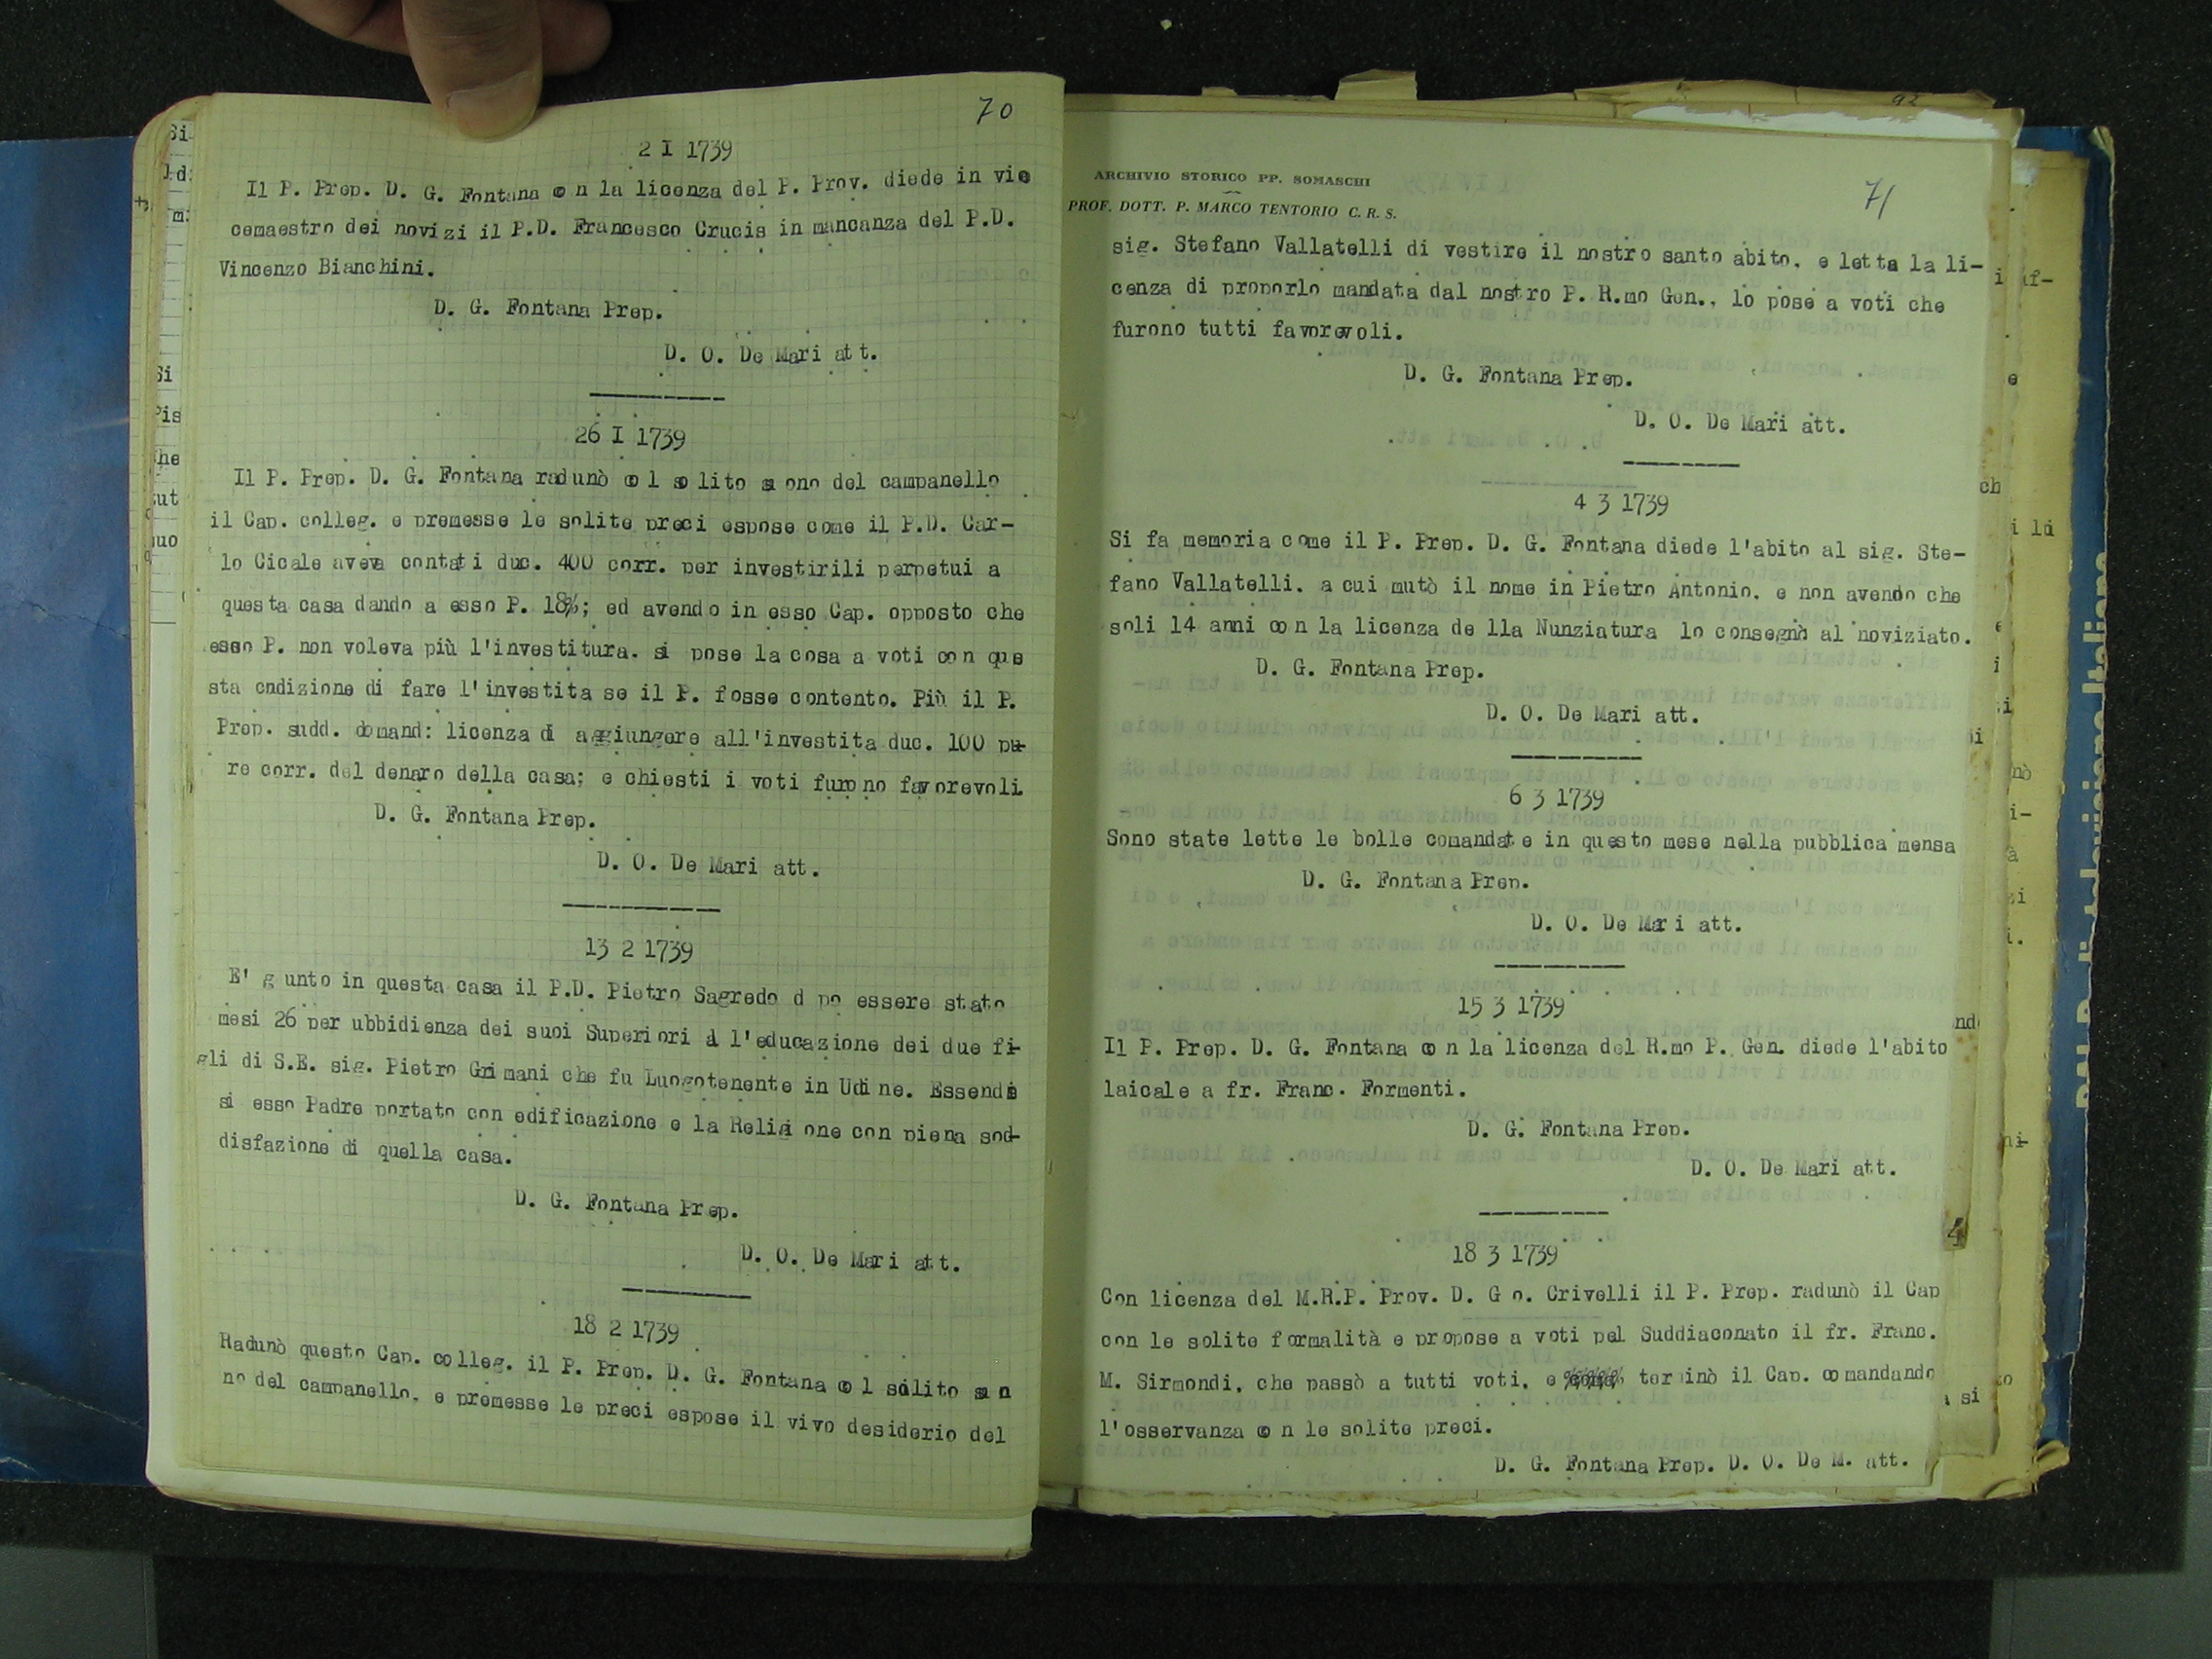 70
2 I 1739
Il P. Prep. D. G. Fontana con la licenza del P. Prov. diede in vic
cemaestro dei novizi il P.D. Francesco Crucis in mancanza del P.D.
Vincenzo Bianchini.
D. G. Fontana Prep.
D. O. De Mari att.
26 I 1739
Il P. Prep. D. G. Fontana radunò col solito suono del campanello
il Cap. colleg. e premesse le solite preci espose come il P.D. Car-
lo Cicale aveva contati duc. 400 corr. per investirili perpetui a
questa casa dando a esso P. 18%; ed avendo in esso Cap. opposto che
esso P. non voleva più l'investitura. si pose la cosa a voti con que
sta cndizione di fare l'investita se il P. fosse contento. Più il P.
Prep. sudd. domand: licenza di aggiungere all'investita duc. 100 pu-
re corr. del denaro della casa; e chiesti i voti furono favorevoli
D. G. Fontana Prep.
D. O. De Mari att.
13 2 1739
E' g unto in questa casa il P.D. Pietro Sagredo d po essere stato
mesi 26 per ubbidienza dei suoi Superiori al l'educazione dei due fi-
gli di S.E. sig. Pietro Grimani che fu Luogotenente in Udine. Essendo
si esso Padre portato con edificazione e la Religi one con piena sod-
disfazione di quella casa.
D. G. Fontana Prep.
D. O. De Mari att.
18 2 1739
Radunò questo Cap. colleg. il P. Prep. D. G. Fontana col solito suo
no del campanello. e premesse le preci espose il vivo desiderio del
ARCHIVIO STORICO PP. SOMASCHI
PROF. DOTT. P. MARCO TENTORIO C. R. S.
71
sig. Stefano Vallatelli di vestire il nostro santo abito. e letta la li-
cenza di proporlo mandata dal nostro P. R.mo Gen., lo pose a voti che
furono tutti favorevoli.
D. G. Fontana Prep.
D. O. De Mari att.
4 3 1739
Si fa memoria come il P. Prep. D. G. Fontana diede l'abito al sig. Ste-
fano Vallatelli. a cui mutò il nome in Pietro Antonio. e non avendo che
soli 14 anni con la licenza de lla Nunziatura lo consegnò al noviziato.
D. G. Fontana Prep.
D. O. De Mari att.
6 3 1739
Sono state lette le bolle comandate in questo mese nella pubblica mensa
D. G. Fontana Prep.
D. O. De Mari att.
15 3 1739
Il P. Prep. D. G. Fontana con la licenza del R.mo P. Gen. diede l'abito
laicale a fr. Franc. Formenti.
D. G. Fontana Prep.
D. O. De Mari att.
18 3 1739
Con licenza del M.R.P. Prov. D. G o. Crivelli il P. Prep. radunò il Cap
con le solite formalità e propose a voti pel Suddiaconato il fr. Franc.
M. Sirmondi, che passò a tutti voti, e ter inò il Cap. comandando
l'osservanza con le solite preci.
D. G. Fontana Prep. D. O. De M. att.